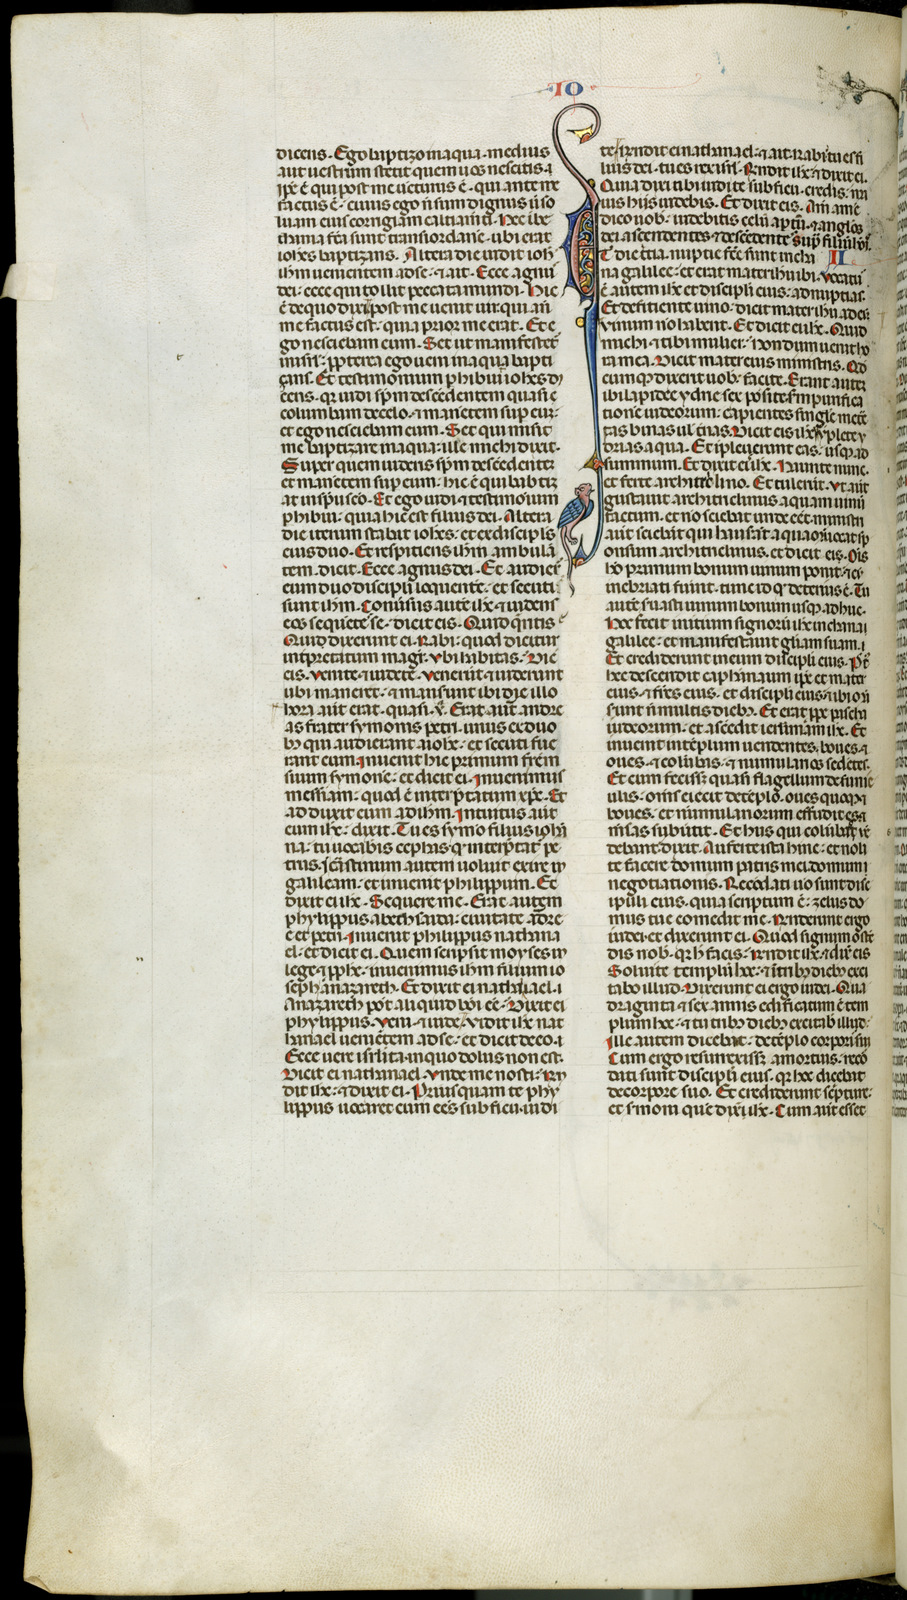 IO
dicens. Ego baptizo in aqua. medius
aut uestrum stetit quem uos nescitis. ⁊
ip̄e ē qui post me uenturus ē. qui ante me
factus ē. cuius ego n̄ sum dignus ut so
luam eius corrigiam calciam̄ti. Hec in be
thania fc̄a sunt trans iordanē. ubi erat
ioh̄es baptizans. Altera die uidit ioh̄
ih̄m uenientem ad se. ⁊ ait. Ecce agnus
dei. ecce qui tollit peccata mundi. Hic
ē de quo dixi post me uenit uir. qui an̄
me factus est. quia prior me erat. Et e
go nesciebam eum. Set ut manifestet᷑
in isrł. ꝓpterea ego ueni in aqua bapti
çans. Et testimonium phibuit ioh̄es di
cens. qr̄ uidi sp̄m descēdentem quasi
columbam de celo. ⁊ manētem sup eū.
et ego nesciebam eum. Set qui misit
me baptizare in aqua. ille michi dixit.
Super quem uideris sp̄m descēdentē
et manētem sup eum. hic ē qui baptiz
at in sp̄u sc̄o. Et ego uidi ⁊ testimonium
phibui. quia hic est filius dei. Altera
die iterum stabat ioh̄es. et ex discipulis
eius duo. Et respiciens ih̄m ambulā
tem. dicit. Ecce agnus dei. Et audier̄
eum duo discipuli loquentē. et secuti
sunt ih̄m. Conuersus autē ih̄c ⁊ uidens
eos sequētes se. dicit eis. Quid q̄ritis
Qui dixerunt ei. Rabi. quod dicitur
int̄pretatum magr̄. ubi habitas. Dic̄
eis. Venite ⁊ uidete. Venerūt ⁊ uiderunt
ubi maneret. ⁊ manserunt ibi die illo
hora aut̄ erat. quasi x̄. Erat aut̄ andre
as frater symonis petri. unus ex duo
bꝫ qui audierant a ioh̄e. et secuti fue
rant eum. Inuenit hic primum fr̄em
suum symonē. et dicit ei. Inuenimus
messiam. quod ē interp̄tatum xp̄c. Et
adduxit eum ad ih̄m. Intuitus aut̄
eum ih̄c. dixit. Tu es symon filius iohā
na. tu uocabis cephas qd̄ interp̄tat᷑ pe
trus. In crastinum autem uoluit exire in
galileam. et inuenit philippum. Et
dixit ei ih̄c. Sequere me. Erat autem
phylippus a bethsaida. ciuitate adre
e et petri. Inuenit philippus nathana
el. et dicit ei. Quem scripsit moyses in
lege ⁊ ꝓphē. inuenimus ih̄m filium io
seph a nazareth. Et dixit ei nathanael. i
A nazareth pōt aliquid bōi ēē. Dixit ei
phylippus. Veni ⁊ uide. Vidit ih̄c nat
hanael uenientem ad se. et dicit de eo. i
Ecce uere isrl̄ita. in quo dolus non est.
Dicit ei nathanael. Vnde me nosti. Rn̄
dit ih̄c. ⁊ dixit ei. Priusquam te phy
lippus uocaret cum eēs sub ficu. uidi
te. Rn̄dit ei nathanael. ⁊ ait. rabi tu es fi
lius dei. tu es rex isrł. Rn̄dit ih̄c ⁊ dixit ei.
Quia dixi tibi uidi te sub ficu. credis. ma
ius hiis uidebis. Et dixit eis. Am̄ amē
dico uob. uidebitis celū aptū. ⁊ anglos
dei ascendentes ⁊ descēdente sup filiū hoīs.
T die t̄cia. nuptie fc̄e sunt in cha
II
na galilee. et erat mater ih̄u ibi. Vocatꝰ
ē autem ih̄c et discipuli eius. ad nuptias.
Et deficiente uino. dicit mater ih̄u ad eū
Vinum nō habent. Et dicit ei ih̄c. Quid
michi ⁊ tibi mulier. Nondum uenit ho
ra mea. Dicit mater eius ministris. Qd
cumqꝫ dixerit uob. facite. Erant autē
ibi lapidee ydrie sex posite scd̄m purifica
tionē iudeorum. capientes single metre
tas binas ul̄ t̄nas. Dicit eis ih̄c. Implete y
drias aqua. Et impleuerunt eas. usqꝫ ad
summum. Et dixit eis ih̄c. Haurite nunc.
et ferte architriclino. Et tulerūt. Vt aut̄
gustauit architriclinus aquam uinū
factum. et nō sciebat unde eēt. ministri
aut̄ sciebāt qui hauserāt aquā. uocat sp
onsum architriclinus. et dicit eis. Ois
hō primum bonum uinum ponit. ⁊ cū
inebriati fuīt. tunc id qd̄ deterius ē. Tu
autē seruasti uinum bonum usqꝫ adhuc.
Hoc fecit initium signorū ih̄c in chana
galilee. et manifestauit gliam suam. i
Et crediderunt in eum discipuli eius. Post
hec descendit capharnaum ip̄e et mater
eius. ⁊ fr̄es eius. et discipuli eius. ⁊ ibi
sūnt n̄ multis diebꝫ. Et erat ꝓpe pascha
iudeorum. et ascēdit ierl̄imam ih̄c. Et
inuenit in tēplum uendentes. boues. ⁊
oues. ⁊ colūbas. ⁊ numularios sedētes.
Et cum fecisset quasi flagellum de funic
ulis. oms eiecit de tēplo. oues quoqꝫ ⁊
boues. et nummulariorum effudit es ⁊
mēsas subūtit. Et hiis qui colūbas uē
debant dixit. Auferte ista hinc. et noli
te facere domum patris mei. domum
negotiationis. Recordati uō sunt disc
ipuli eius. quia scriptum ē. zelus do
mus tue comedit me. Rn̄derunt ergo
iudei. et dixerunt ei. Quod signum oste
dis nob. qr̄ h̄ facis. Rn̄dit ih̄c. ⁊ dix̄ eis
Soluite templū hoc. ⁊ in t̄bꝫ diebꝫ exci
tabo illud. Dixerunt ei ergo iudei. Qua
draginta ⁊ sex annis edificatum ē tem
plum hoc. ⁊ tu t̄bꝫ diebꝫ excitab illud.
Ille autem dicebat. de tēplo corporis sui
Cum ergo resurrexisset a mortuis. reco
dati sunt discipuli eius. qr̄ hoc dicebat
de corpore suo. Et crediderunt scpture.
et s̄moni quē dixit ih̄c. Cum aut̄ esset